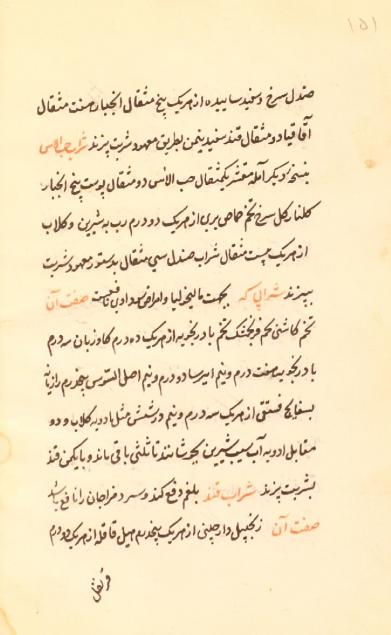 ۱۵۱
صندل سرخ و سفید ساییده از هریک پنج مثقال انجبار هفت مثقال
آقاقیا دو مثقال قند سفید بطریق معهود شربت پزند شراب حب الاس
بنسخه دیگر آمله مقشر یکمثقال حب الاس دو مثقال پوست بیخ انجبار
گلنار گل سرخ تخم حماض بری از هریک دو درم رب به شیرین و گلاب
از هریک بیست مثقال شراب صندل سی مثقال بدستور معهود شربت
بپزند شرابی که بجهت مالیخولیا و امراض سوداوی نافعست صفت آن
تخم کاسنی تخم فرنجمشک تخم بادرنجبویه از هریک ده درم گاوزبان سه درم
بادرنجبویه هفت درم و نیم دو درم و نیم اصل السوس پنجدرم رازیانه
بسفایج فستقی از هریک سه درم و نیم در شش مثل ادویه گلاب و دو
مقابل ادویه آب سیب شیرین بجوشانند تا ثلثی باقی ماند و با یکمن قند
بشربت پزند شراب قند بلغم دفع کند و سرد مزاجان را نافع باشد
صفت آن زنجبیل دارچینی از هریک پنجدرم هیل قاقله از هریک دو درم
قرنفل